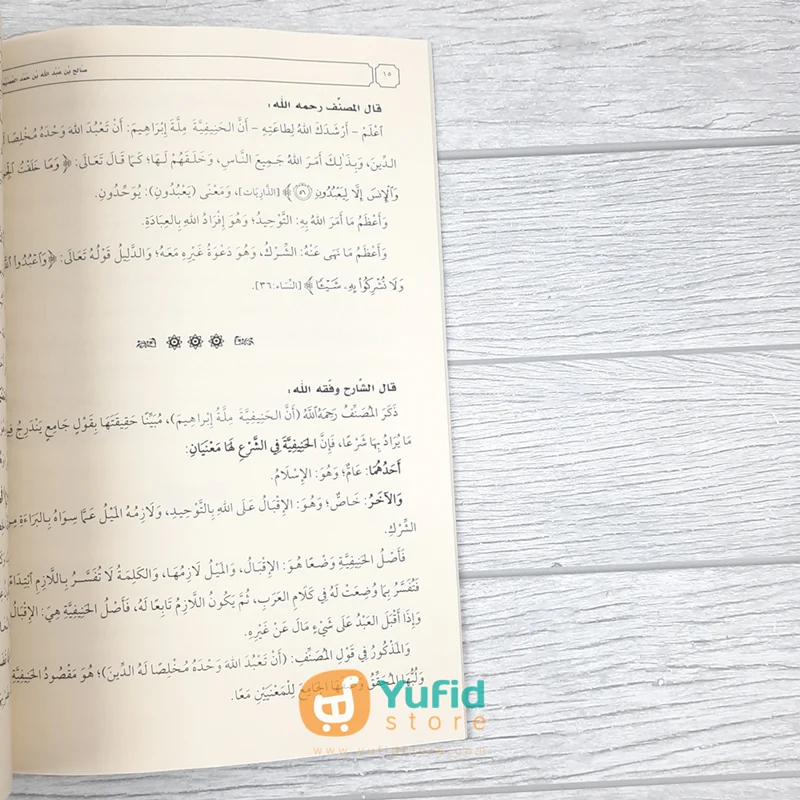 ١٥
صالح بن عبد الله بن حمد العصيمي
قال المصنِّف رحمه الله:
اعْلَمْ - أَرْشَدَكَ اللهُ لِطَاعَتِهِ - أَنَّ الحَنِيفِيَّةَ مِلَّةَ إِبْرَاهِيمَ: أَنْ تَعْبُدَ اللهَ وَحْدَهُ مُخْلِصًا
الدِّينَ، وَبِذَلِكَ أَمَرَ اللهُ جَمِيعَ النَّاسِ، وَخَلَقَهُمْ لَهَا؛ كَمَا قَالَ تَعَالَى: ﴿وَمَا خَلَقْتُ ٱلْجِنَّ
وَٱلْإِنسَ إِلَّا لِيَعْبُدُونِ ٥٦﴾ [الذَّارِيَات]، وَمَعْنَى (يَعْبُدُونِ): يُوَحِّدُونِ.
وَأَعْظَمُ مَا أَمَرَ اللهُ بِهِ: التَّوْحِيدُ؛ وَهُوَ إِفْرَادُ اللهِ بِالعِبَادَةِ.
وَأَعْظَمُ مَا نَهَى عَنْهُ: الشِّرْكُ، وَهُوَ دَعْوَةُ غَيْرِهِ مَعَهُ؛ وَالدَّلِيلُ قَوْلُهُ تَعَالَى: ﴿وَٱعْبُدُوا۟
وَلَا تُشْرِكُوا۟ بِهِۦ شَيْـًٔا﴾ [النِّسَاء:٣٦].
قال الشَّارح وفَّقه الله:
ذَكَرَ المُصَنِّفُ رَحِمَهُ اللَّهُ (أَنَّ الحَنِيفِيَّةَ مِلَّةُ إِبْرَاهِيمَ)، مُبَيِّنًا حَقِيقَتَهَا بِقَوْلٍ جَامِعٍ يَنْدَرِجُ
مَا يُرَادُ بِهَا شَرْعًا، فَإِنَّ الحَنِيفِيَّةَ فِي الشَّرْعِ لَهَا مَعْنَيَانِ:
أَحَدُهُمَا: عَامٌّ؛ وَهُوَ: الإِسْلَامُ.
وَالآخَرُ: خَاصٌّ؛ وَهُوَ: الإِقْبَالُ عَلَى اللهِ بِالتَّوْحِيدِ، وَلَازِمُهُ المَيْلُ عَمَّا سِوَاهُ بِالبَرَاءَةِ مِنَ
الشِّرْكِ.
فَأَصْلُ الحَنِيفِيَّةِ وَضْعًا هُوَ: الإِقْبَالُ، وَالمَيْلُ لَازِمُهَا، وَالكَلِمَةُ لَا تُفَسَّرُ بِاللَّازِمِ ابْتِدَاءً
فَتُفَسَّرُ بِمَا وُضِعَتْ لَهُ فِي كَلَامِ العَرَبِ، ثُمَّ يَكُونُ اللَّازِمُ تَابِعًا لَهُ، فَأَصْلُ الحَنِيفِيَّةِ هِيَ: الإِقْبَالُ
وَإِذَا أَقْبَلَ العَبْدُ عَلَى شَيْءٍ مَالَ عَنْ غَيْرِهِ.
وَالمَذْكُورُ فِي قَوْلِ المُصَنِّفِ: (أَنْ تَعْبُدَ اللهَ وَحْدَهُ مُخْلِصًا لَهُ الدِّينَ)؛ هُوَ مَقْصُودُ الحَنِيفِيَّةِ
وَلُبُّهَا المُحَقِّقُ وَصْفَهَا الجَامِعَ لِلْمَعْنَيَيْنِ مَعًا.
Yufid
store